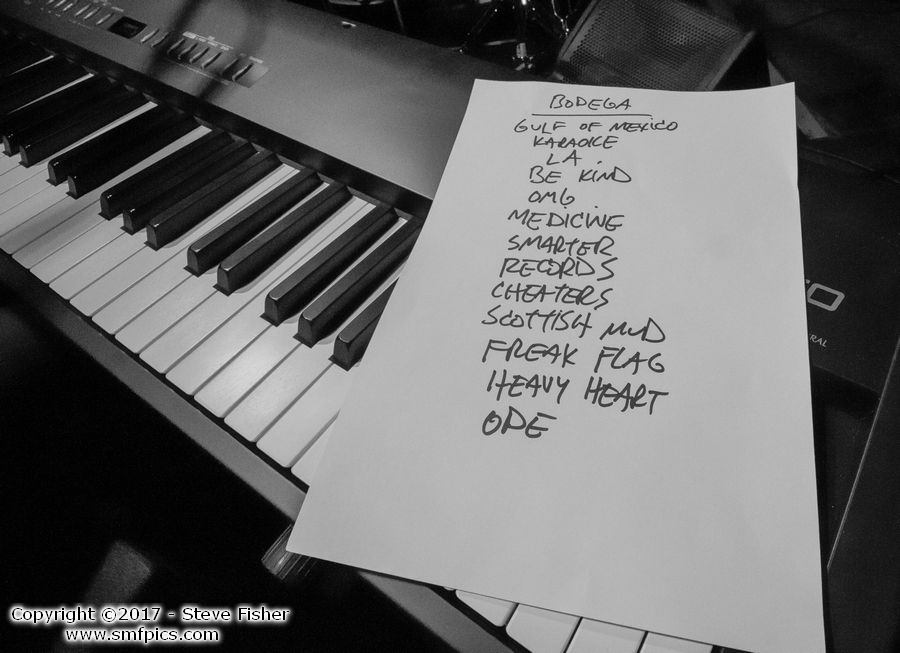 BODEGA
GULF OF MEXICO
KARAOKE
LA
BE KIND
OMG
MEDICINE
SMARTER
RECORDS
CHEATERS
SCOTTISH MUD
FREAK FLAG
HEAVY HEART
ODE
Copyright ©2017 - Steve Fisher
www.smfpics.com